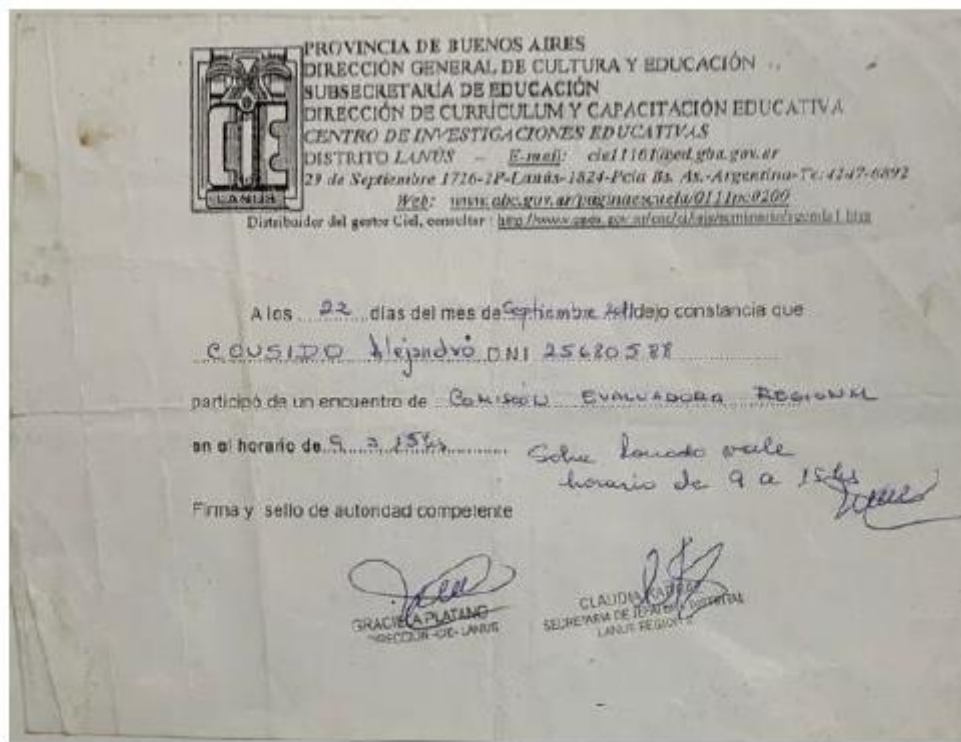 CIE
LANUS
PROVINCIA DE BUENOS AIRES
DIRECCIÓN GENERAL DE CULTURA Y EDUCACIÓN
SUBSECRETARÍA DE EDUCACIÓN
DIRECCIÓN DE CURRÍCULUM Y CAPACITACIÓN EDUCATIVA
CENTRO DE INVESTIGACIONES EDUCATIVAS
DISTRITO LANÚS – E-mail:
29 de Septiembre 1716-1P-Lanús-1824-Pcia Bs. As.-Argentina-Te: 4247-6892
Web:
Distribuidor del gestor Ciel, consultar :
A los 22 días del mes de Septiembre dejo constancia que
COUSIDO Alejandro DNI 25620588
participó de un encuentro de COMISIÓN EVALUADORA REGIONAL
en el horario de 9 a 15 hs
Sobre borrado vale
horario de 9 a 15 hs
Firma y sello de autoridad competente
GRACIELA PLATANO
DIRECTOR -CIE- LANUS
CLAUDIA
SECRETARIA DE
LANUS REGION